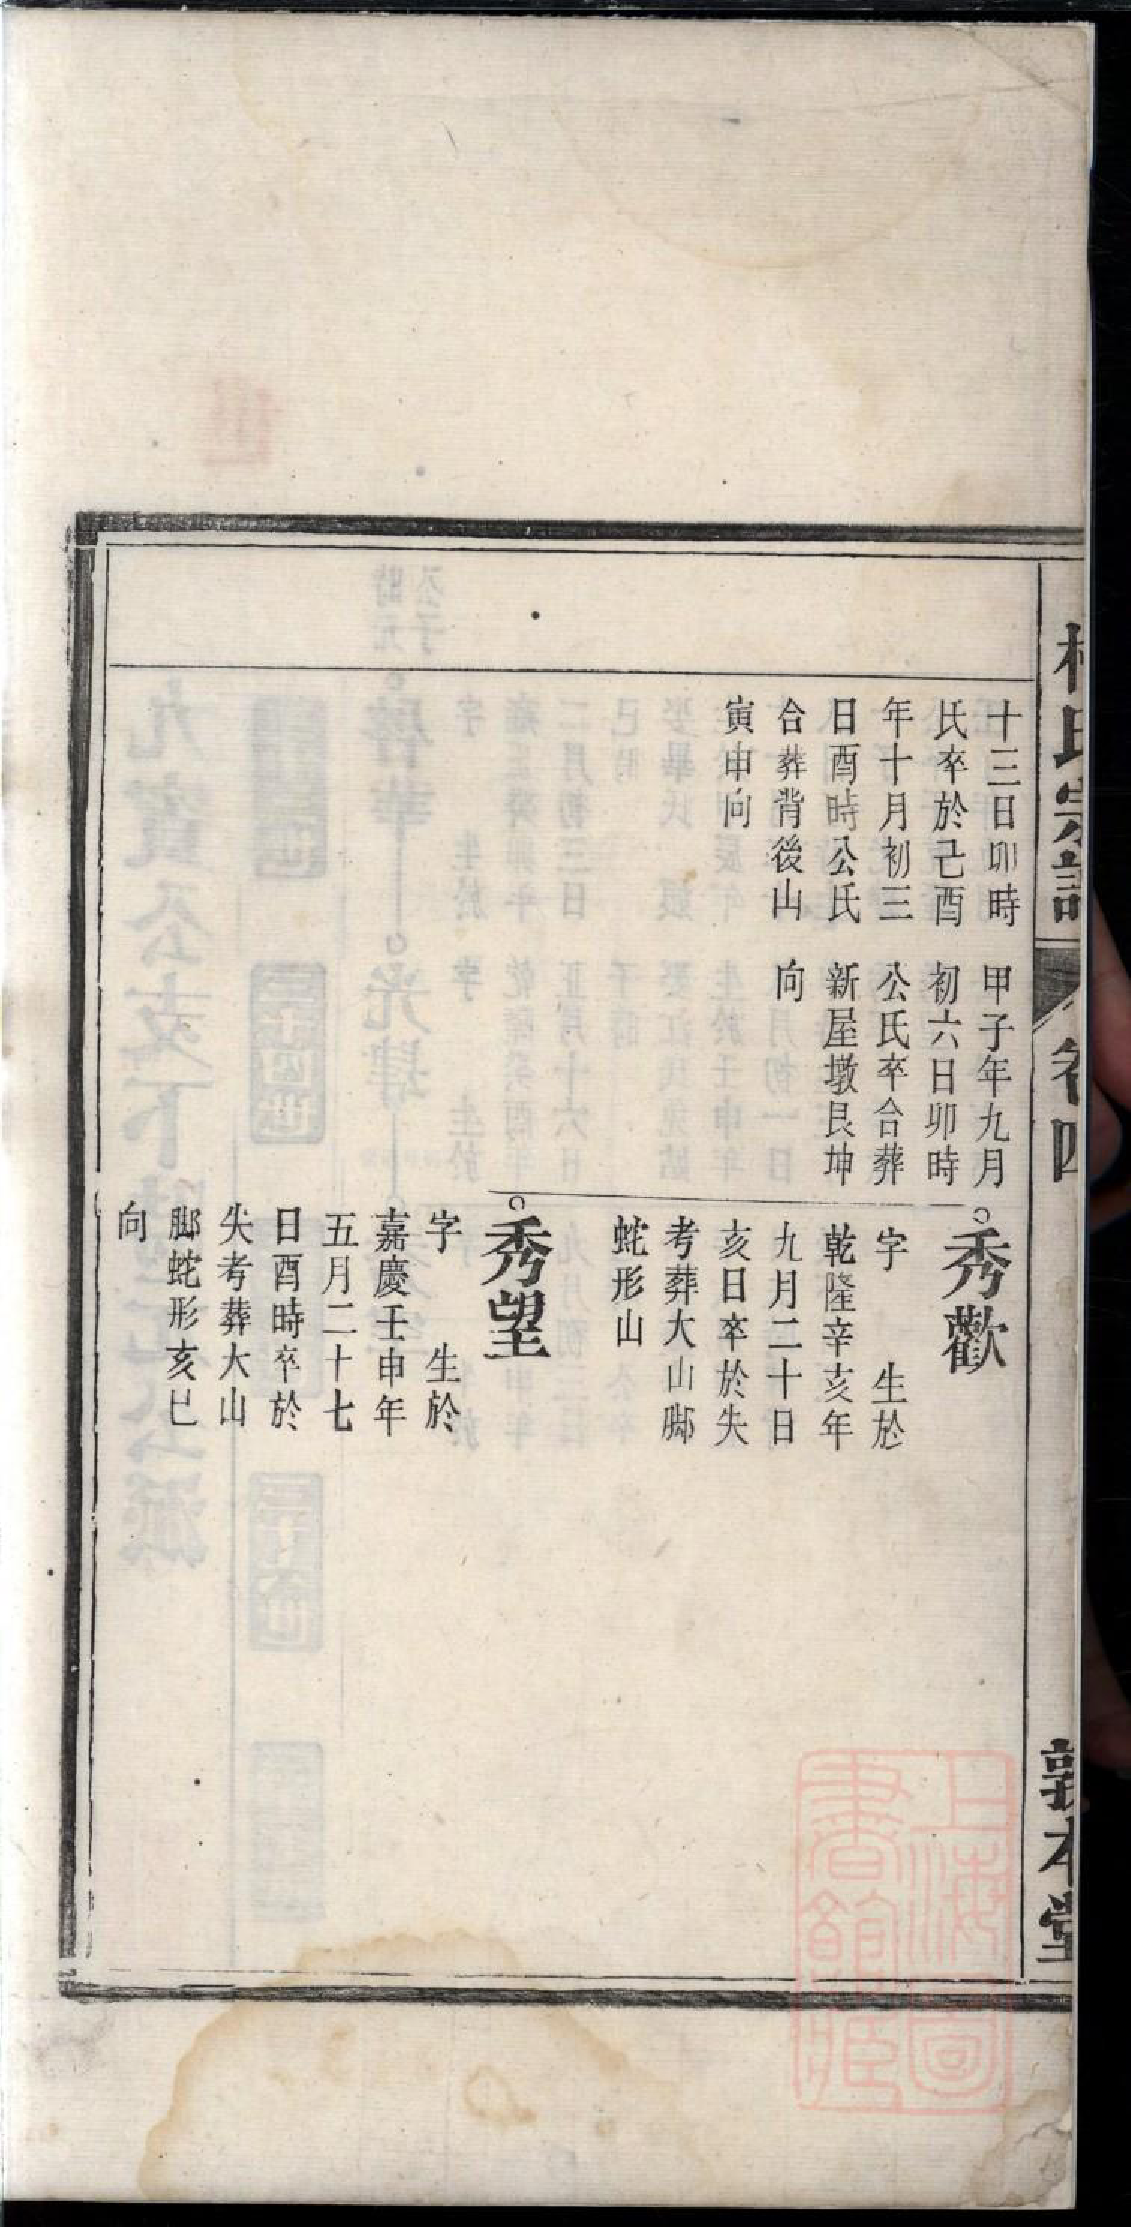 氏宗譜
卷四
敦本堂
十三日卯時
氏卒於己酉
年十月初三
日酉時公氏
合葬背後山
寅申向
甲子年九月
初六日卯時
公氏卒合葬
新屋墩艮坤
向
秀歡
字 生於
乾隆辛亥年
九月二十日
亥日卒於失
考葬大山腳
蛇形山
秀望
字 生於
嘉慶壬申年
五月二十七
日酉時卒於
失考葬大山
腳蛇形亥巳
向
上海圖
書館藏